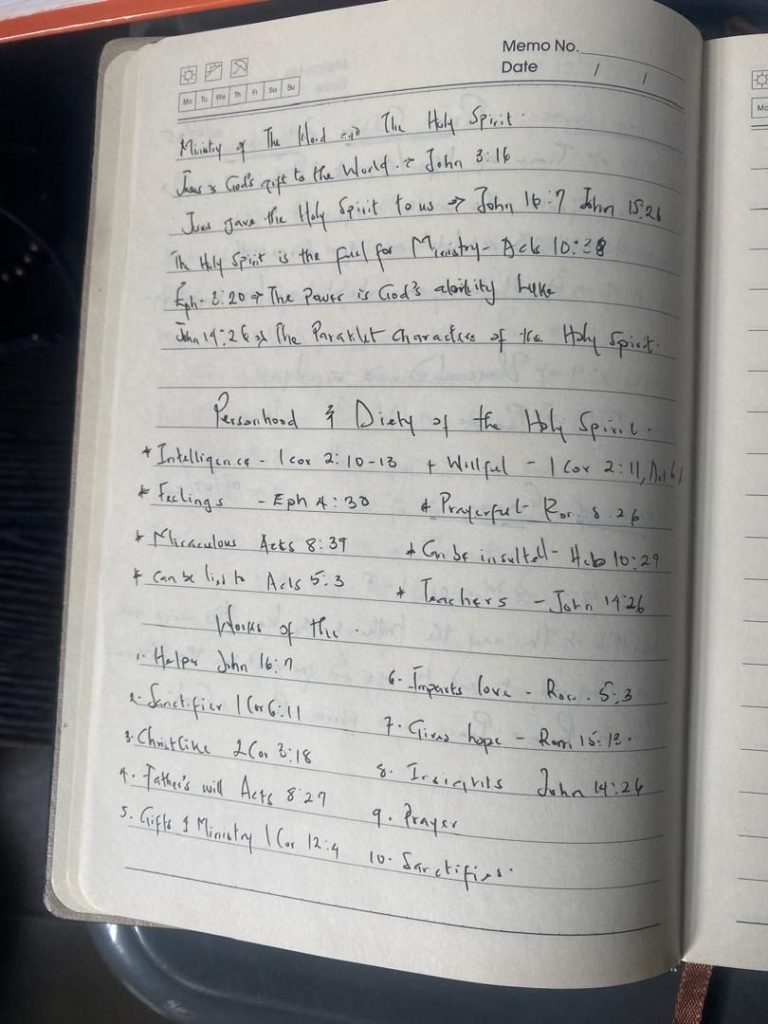 Memo No.
Date / /
Mo Tu We Th Fr Sa Su
Ministry of The Word and The Holy Spirit.
Jesus is God's gift to the World. → John 3:16
Jesus gave the Holy Spirit to us → John 16:7 John 15:26
The Holy Spirit is the fuel for Ministry - Acts 10:38
Eph. 3:20 → The Power is God's ability
John 14:26 → The Paraklet Character of the Holy Spirit.
Personhood & Diety of the Holy Spirit.
* Intelligence - 1 Cor 2:10-13 + Willful - 1 Cor 2:11,
* Feelings - Eph 4:30 * Prayerful - Rom 8.26
* Miraculous Acts 8:39 * Can be insulted - Heb 10:29
* Can be lied to Acts 5:3 * Teachers - John 14:26
Works of the.
1. Helper John 16:7 6. Imparts love - Rom. 5:3
2. Sanctifier 1 Cor 6:11 7. Gives hope - Rom 15:13.
3. Christlike 2 Cor 3:18 8. John 14:26
4. Father's will Acts 8:29 9. Prayer
5. Gifts & Ministry 1 Cor 12:4 10. Sanctifies.
Mo